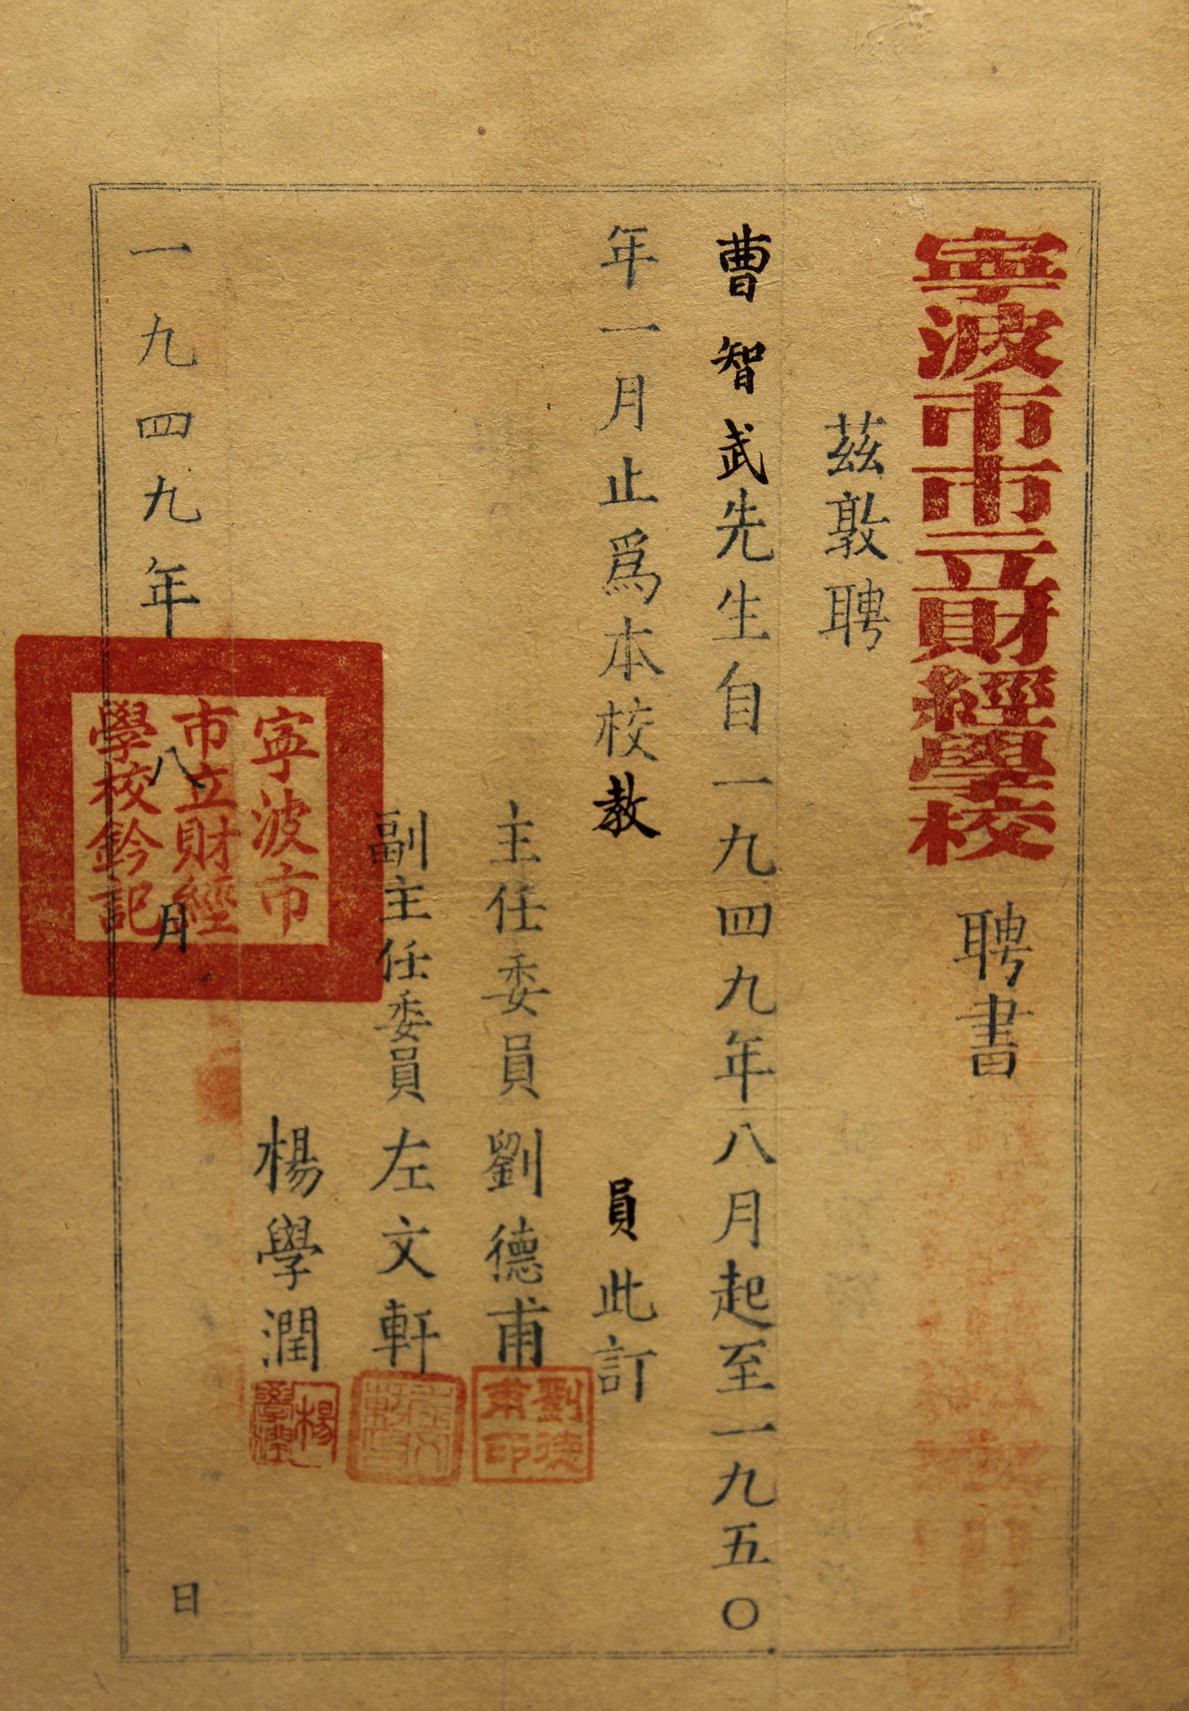 寧波市市立財經學校 聘書
茲敦聘
曹智武先生自一九四九年八月起至一九五〇
年一月止爲本校教 員此訂
主任委員 劉德甫
劉德甫印
副主任委員 左文軒
楊學潤
楊學潤
一九四九年 八 月 日
寧波市
市立財經
學校鈐記